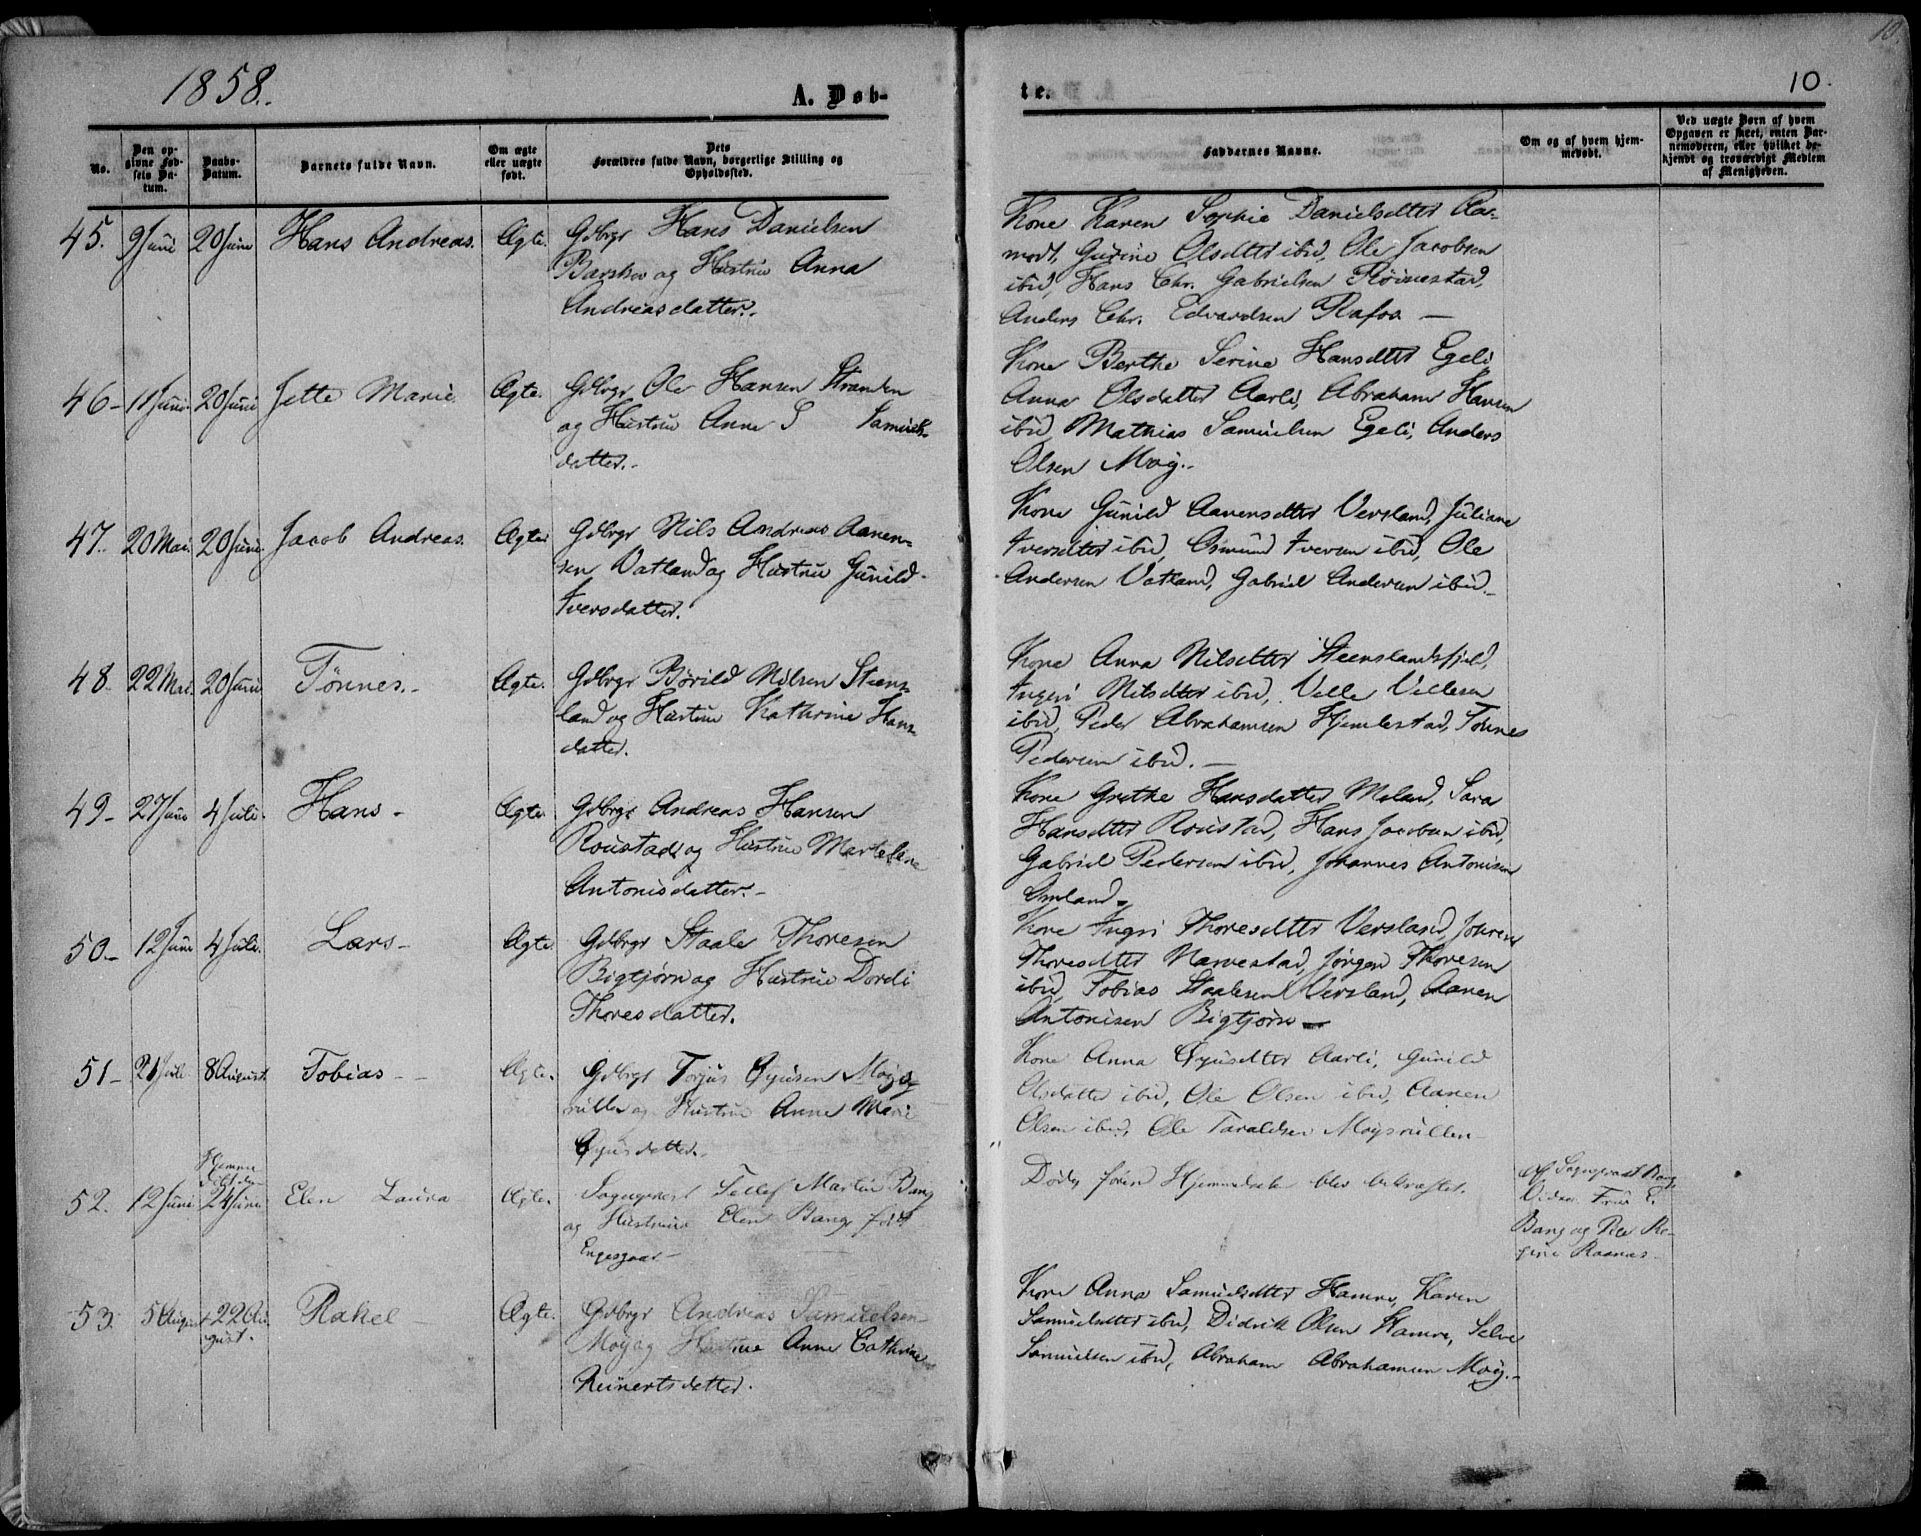 1858.
A. Døb-
te.
10.
10
No.
Den op-
givne Fød-
sels Da-
tum.
Daabs-
Datum.
Barnets fulde Navn.
Om ægte
eller uægte
født.
Dets
Forældres fulde Navn, borgerlige Stilling og
Opholdssted.
Faddernes Navne.
Om og af hvem hjem-
medøbt.
Ved uægte Børn af hvem
Opgaven er skeet, enten Bar-
nemoderen, eller hvilket be-
kjendt og troværdigt Medlem
af Menigheden.
45. 9 Juni 20 Juni Hans Andreas. Ægte. Gdbrgr Hans Danielsen
og Hustrue Anna
Andreasdatter.
Kone Karen Sophie Danielsdtter Aa-
modt, Gurine Olsdtter ibid, Ole Jacobsen
ibid, Hans Chr. Gabrielsen Røinestad,
Anders Chr. Edvardsen Rafos —
46- 11 Juni 20 Juni Jette Marie. Ægte. Gdbrgr Ole Hansen Stranden
og Hustrue Anne S Samuels-
datter.
Kone Berthe Serine Hansdtter Egeli
Anna Olsdatter Aarli, Abraham Hansen
ibid Mathias Samuelsen Egeli, Anders
Olsen Moij.
47. 20 Mai. 20 Juni. Jacob Andreas. Ægte Gdbrgr Nils Andreas Aanen-
sen Vatland og Hustrue Gunild
Iversdatter.
Kone Gunild Aanensdtter Versland, Juliane
Iversdtter ibid, Osmund Iversen ibid, Ole
Andersen Vatland, Gabriel Andersen ibid.
48. 22 Mai. 20 Juni Tønnes. Ægte. Gdbrgr Børild Nilsen Steens-
land og Hustrue Kathrine Hans-
datter.
Kone Anna Nilsdtter Steenslandsfjeld,
Ingeri Nilsdtter ibid, Velle Villesen
ibid, Peder Abrahamsen Hjemlestad, Tønnes
Pedersen ibid. —
49- 27 Juni 4 Juli. Hans - Ægte. Gdbrgr Andreas Hansen
Roustad og Hustrue Marteline
Antonisdatter.
Kone Grethe Hansdatter Moland, Sara
Hansdtter Roustad, Hans Jacobsen ibid,
Gabriel Pedersen ibid, Johannes Antonisen
Omland.
50- 12 Juni 4 Juli. Lars- Ægte. Gdbrgr Staale Thoresen
Bigtjørn og Hustrue Dordi
Thoresdatter.
Kone Ingri Thoresdtter Versland,
Thoresdtter Narvestad, Jørgen Thoresen
ibid, Tobias Staalesen Versland, Aanen
Antonisen Bigtjørn —
51- 21 Juli 8 August Tobias - Ægte. Gdbrgr Torjus Øyusen Moijs-
rullen og Hustrue Anne Marie
Øyusdatter.
Kone Anna Øyusdtter Aarli, Gunild
Olsdatter ibid, Ole Olsen ibid, Aanen
Olsen ibid, Ole Taraldsen Moijsrullen
52. 12 Juni Hjemme
24 Juni Elen Laura Ægte. Sogneprest Tellef Martin Bang
og Hustrue Elen Bang født
Engesgaar -
Døde førend Hjemmedaaben blev bekræftet.
Af Sogneprest Bang
Vidner Frue E.
Bang og Pige Re-
gine Raanaas
53. 5 August 22 Au-
gust. Rakel - Ægte. Gdbrgr Andreas Samuelsen
Moij og Hustrue Anne Cathrine
Reinertsdatter.
Kone Anna Samuelsdtter Hamre, Karen
Samuelsdtter ibid, Didrik Olsen Hamre, Selve
Samuelsen ibid, Abraham Abrahamsen Moij.